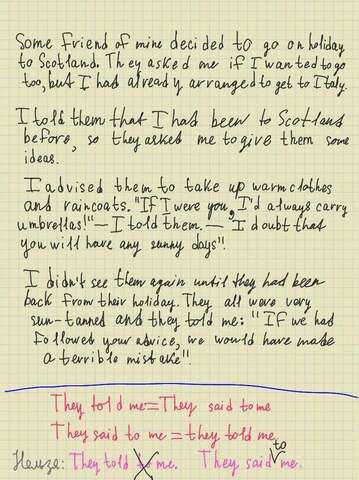 Some friend of mine decided to go on holiday
to Scotland. They asked me if I wanted to go
too, but I had already arranged to get to Italy.
I told them that I had been to Scotland
before, so they asked me to give them some
ideas.
I advised them to take up warm clothes
and raincoats. "If I were you, I'd always carry
umbrellas!" — I told them. — "I doubt that
you will have any sunny days".
I didn't see them again until they had been
back from their holiday. They all were very
sun-tanned and they told me: "If we had
followed your advice, we would have made
a terrible mistake".
They told me = They said to me
They said to me = they told me
Нельзя: They told to me. They said to me.